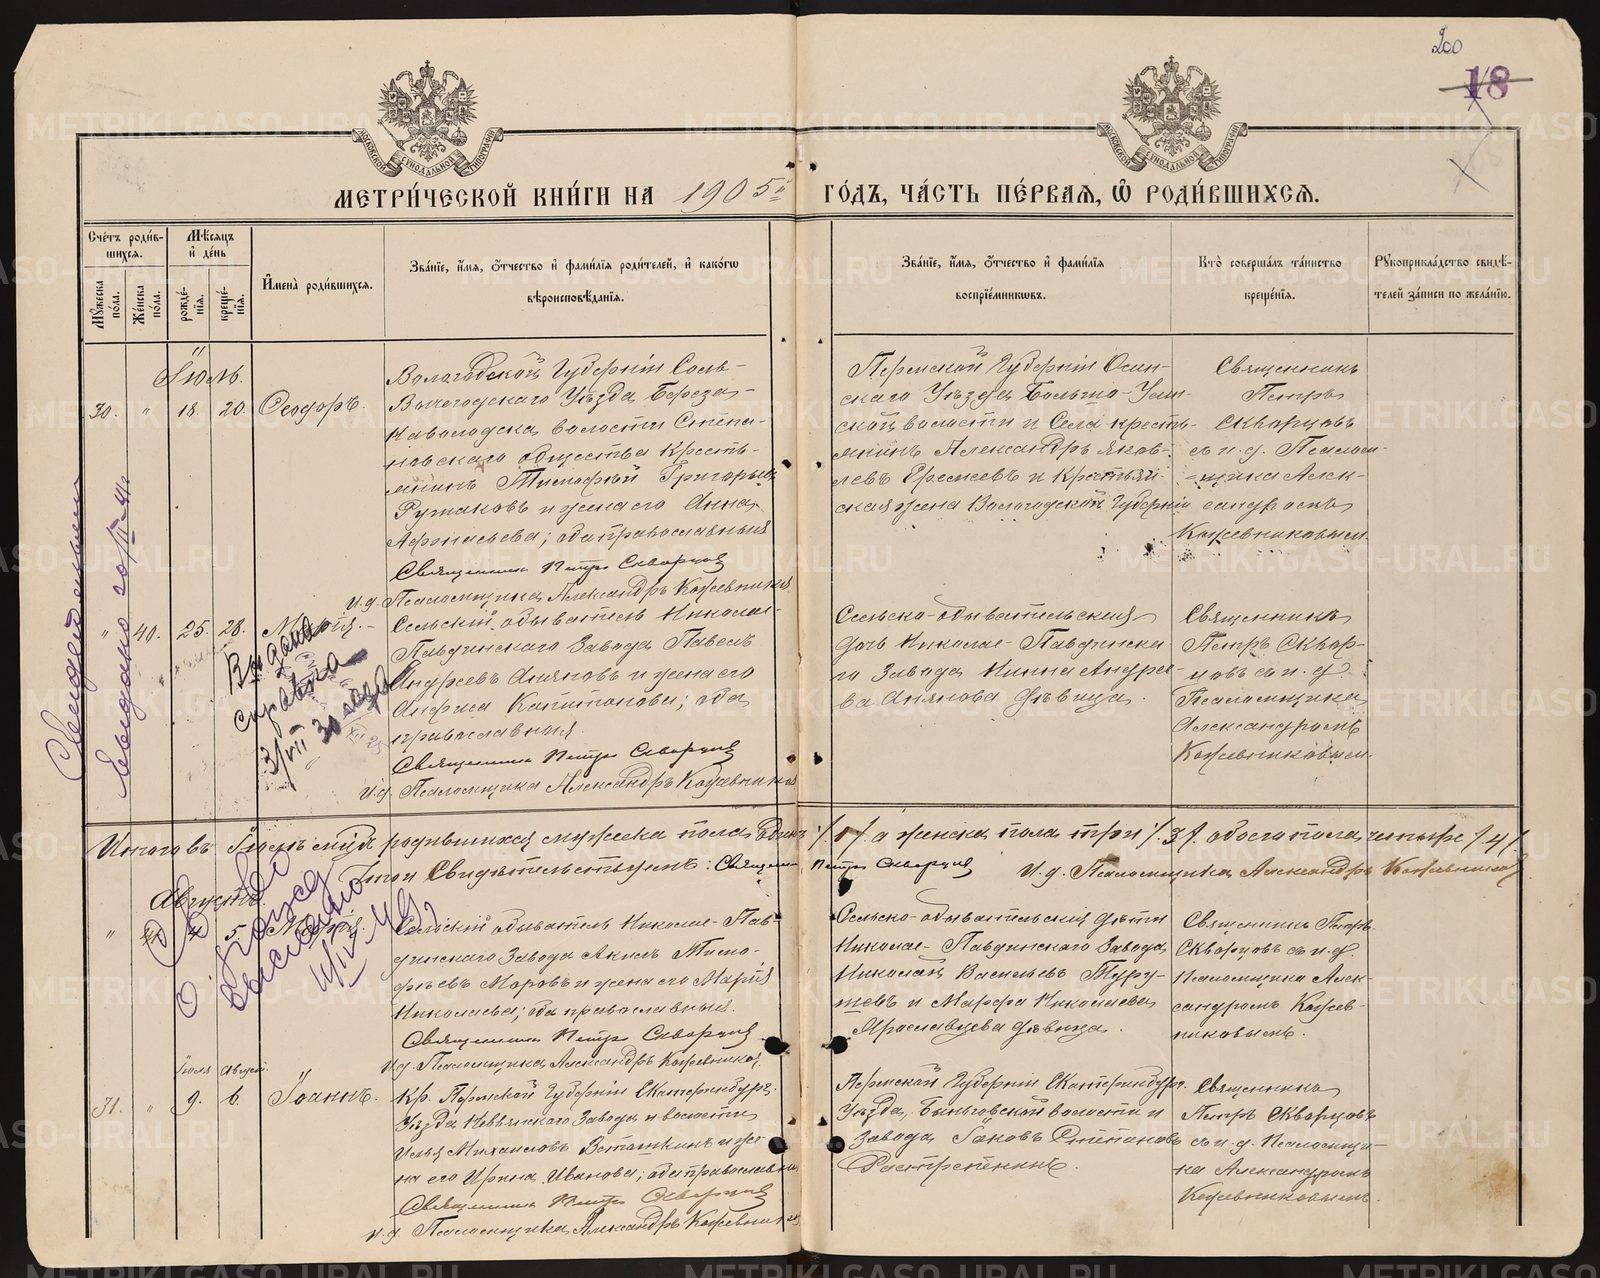 200
18
МОСКОВСКОЙ СѴНОДАЛЬНОЙ ТИПОГРАФІИ
МОСКОВСКОЙ СѴНОДАЛЬНОЙ ТИПОГРАФІИ
МЕТРИ́ЧЕСКОЙ КНИ́ГИ НА 1905й
ГО́ДЪ, ЧА́СТЬ ПЕ́РВАЯ, Ѡ҆ РОДИ́ВШИХСЯ.
Сче́тъ роди́в-
шихся.
Му́жеска по́ла.
Же́нска по́ла.
Мѣ́сяцъ и҆ де́нь
рожде́нїя.
креще́нїя.
И҆мена̀ роди́вшихся.
Зва́нїе, и҆́мя, ѻ҆́тчество и҆ фами́лїя роди́телей, и҆ како́гѡ
вѣроисповѣ́данїя.
Зва́нїе, и҆́мя, ѻ҆́тчество и҆ фами́лїя
воспрїе́мниковъ.
Кто̀ соверша́лъ та́инство
креще́нїя.
Рꙋкоприкла́дство свидѣ́-
телей за́писи по жела́нїю.
Іюль.
30.
"
18.
20.
Ѳеодоръ.
Вологодской Губерніи Соль-
Вычегодскаго Уѣзда Береза-
Наволоцка, волости Степа-
новскаго общества Кресть-
янинъ Тимофей Григорьевъ
и жена его Анна
Афонасьева; оба православныя
Священникъ Петръ Скворцовъ
и.д. Псаломщика Александръ Кожевниковъ
Пермской Губерніи Осин-
скаго Уѣзда, Больше-Усин-
ской волости и Села кресть-
янинъ Александръ Яков-
левъ Еремеевъ и Крестьян-
ская жена Вологодской Губерніи
Священникъ
Петръ
Скворцовъ
съ и.д. Псалом-
щика Алек-
сандромъ
Кожевниковымъ
"
40.
25.
28.
Сельскій обыватель Николае-
Павдинскаго Завода Павелъ
Андреевъ и жена его
Капитонова; оба
православныя.
Священникъ Петръ Скворцовъ
и.д. Псаломщика Александръ Кожевниковъ
Сельско-обывательская
дочь Николае-Павдинска-
го Завода Андрее-
ва дѣвица.
Священникъ
Петръ Сквор-
цовъ съ и.д.
Псаломщика
Александромъ
Кожевниковымъ.
Выдана
справка
3/VIII 30 года
Свидетел.
выдано
Итого въ Іюлѣ мцѣ родившихся мужска пола одинъ /1/. а женска пола три /3/. обоего пола четыре /4/.
Въ томъ Свидѣтельствуемъ: Священникъ Петръ Скворцовъ и.д. Псаломщика Александръ Кожевниковъ
Августъ.
"
5.
Марія.
Св-во
о рожд
выслано
11/IV-41
Сельскій обыватель Николае-Пав-
динскаго Завода Акимъ Тимо-
фѣевъ Моровъ и жена его Марія
Николаева; оба православныя.
Священникъ Петръ Скворцовъ
и.д. Псаломщика Александръ Кожевниковъ.
Сельско-обывательскія дѣти
Николае-Павдинскаго Завода,
Николай Васильевъ
и Марфа Николаева
Ярославцева дѣвица.
Священникъ Петръ
Скворцовъ съ и.д.
Псаломщика Алек-
сандромъ Кожев-
никовымъ.
Іюля
Август.
31.
"
9.
6.
Іоаннъ.
Кр. Пермской Губерніи Екатеринбург.
Уѣзда Невьянскаго Завода и волости
Илья Михаиловъ и же-
на его Ирина Иванова; оба православныя
Священникъ Петръ Скворцовъ
и.д. Псаломщика Александръ Кожевниковъ
Пермской Губерніи Екатеринбург.
Уѣзда, Быньговской волости и
Завода Іаковъ Степановъ
Священникъ
Петръ Скворцовъ
съ и.д. Псаломщи-
ка Александромъ
Кожевниковымъ.
METRIKI.GASO-URAL.RU